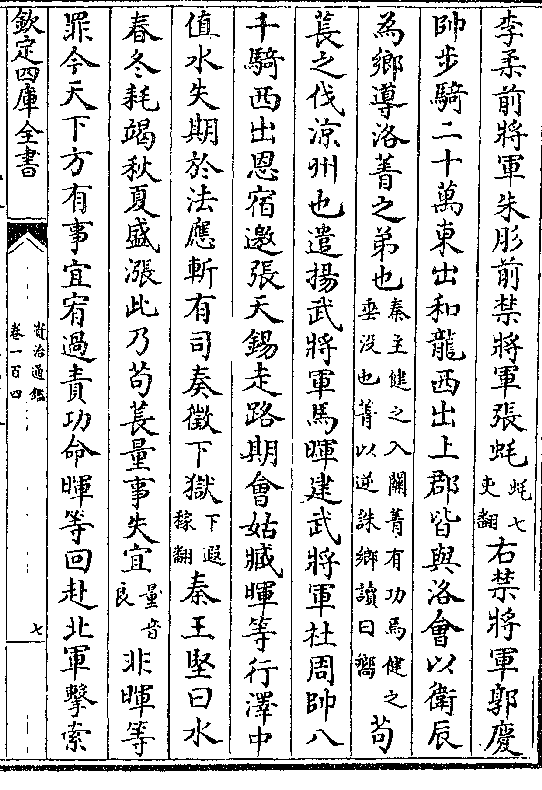 李柔前將軍朱肜前禁將軍張蚝蚝七吏翻右禁將軍郭慶
帥步騎二十萬東出和龍西出上郡皆與洛會以衛辰
為鄉導洛菁之弟也秦主健之入關菁有功焉健之垂没也菁以逆誅鄉讀曰嚮苟
萇之伐涼州也遣揚武將軍馬暉建武將軍杜周帥八
千騎西出恩宿邀張天錫走路期會姑臧暉等行澤中
值水失期於法應斬有司奏徵下獄下遐稼翻秦王堅曰水
春冬耗竭秋夏盛漲此乃苟萇量事失宜量音良非暉等
罪今天下方有事宜宥過責功命暉等回赴北軍擊索
欽定四庫全書
資治通鑑
卷一百四
七